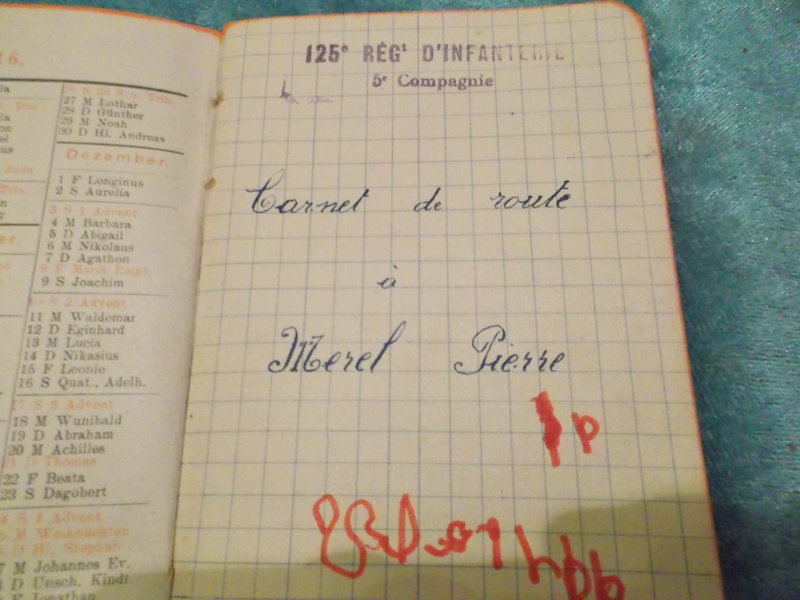 16.
26 S 23 S n. Trin.
27 M Lothar
28 D Günther
29 M Noah
30 D Hl. Andreas
Dezember.
1 F Longinus
2 S Aurelia
3 S 1 Advent
4 M Barbara
5 D Abigail
6 M Nikolaus
7 D Agathon
8 F Mariä Empf.
9 S Joachim
10 S 2 Advent
11 M Waldemar
12 D Eginhard
13 M Lucia
14 D Nikasius
15 F Leonie
16 S Quat., Adelh.
17 S 3 Advent
18 M Wunibald
19 D Abraham
20 M Achilles
21 D Thomas
22 F Beata
23 S Dagobert
S 4 Advent
M Weihnachten
D Hl. Stephan
7 M Johannes Ev.
D Unsch. Kindl
F Jonathan
125e RÉGt D'INFANTERIE
5e Compagnie
Carnet de route
à
Merel Pierre